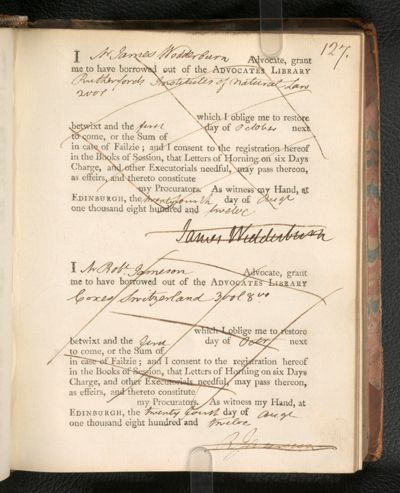 127.
I Mr James Wedderburn Advocate, grant
me to have borrowed out of the ADVOCATES LIBRARY
Rutherfords Institutes of natural Law
2 vol
which I oblige me to restore
betwixt and the first day of October next
to come, or the Sum of
in case of Failzie; and I consent to the registration hereof
in the Books of Session, that Letters of Horning on six Days
Charge, and other Executorials needful, may pass thereon,
as effeirs, and thereto constitute
my Procurators. As witness my Hand, at
EDINBURGH, the twenty fourth day of
one thousand eight hundred and twelve
James Wedderburn
I Mr Robt Jameson Advocate, grant
me to have borrowed out of the ADVOCATES LIBRARY
Coxes Switzerland 3 vol 8vo
which I oblige me to restore
betwixt and the first day of Octr next
to come, or the Sum of
in case of Failzie; and I consent to the registration hereof
in the Books of Session, that Letters of Horning on six Days
Charge, and other Executorials needful, may pass thereon,
as effeirs, and thereto constitute
my Procurators. As witness my Hand, at
EDINBURGH, the twenty fourth day of
one thousand eight hundred and twelve
R Jameson